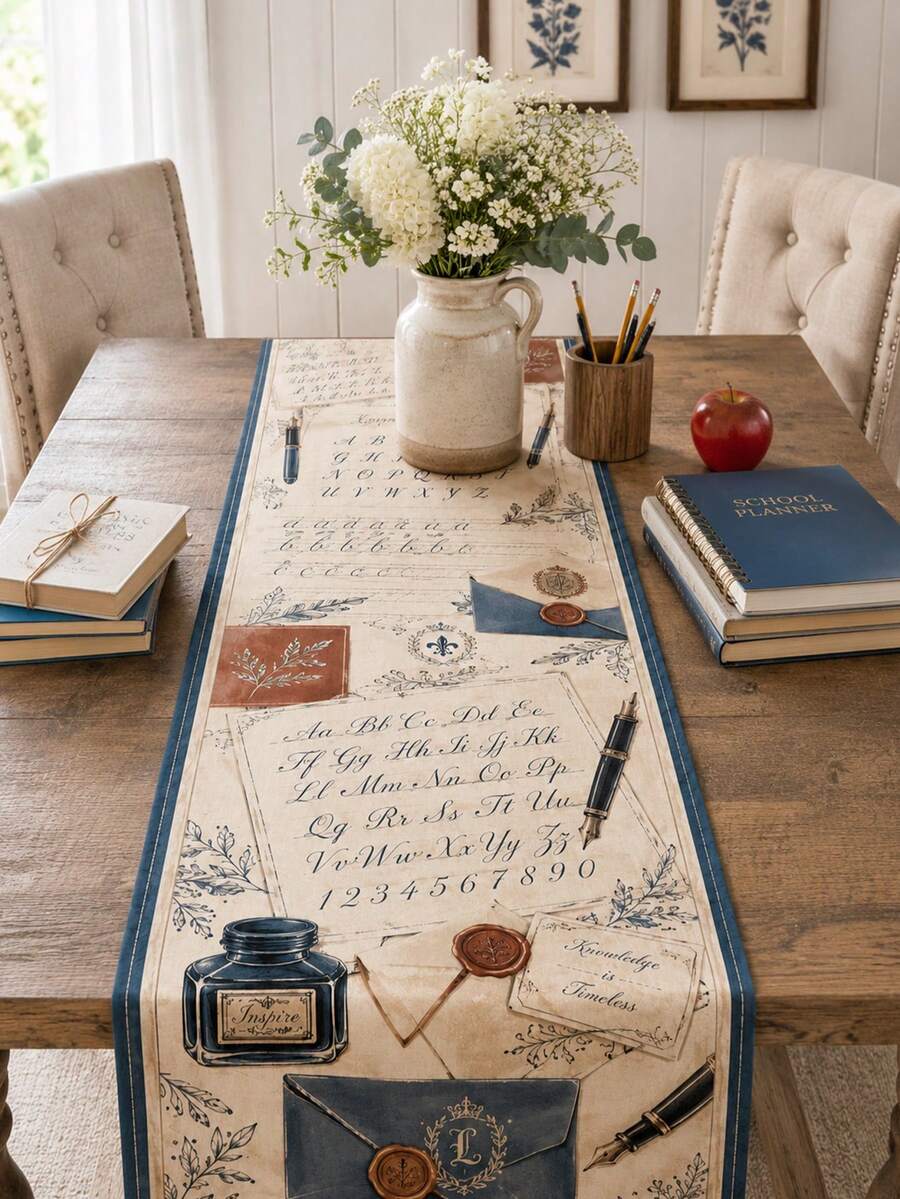 A B
G H I
N O P Q R S T
U V W X Y Z
a a a a a a a
b b b b b b c
SCHOOL
PLANNER
Aa Bb Cc Dd Ee
Ff Gg Hh Ii Jj Kk
Ll Mm Nn Oo Pp
Qq Rr Ss Tt Uu
Vv Ww Xx Yy Zz
1 2 3 4 5 6 7 8 9 0
Knowledge
is
Timeless
Inspire
L